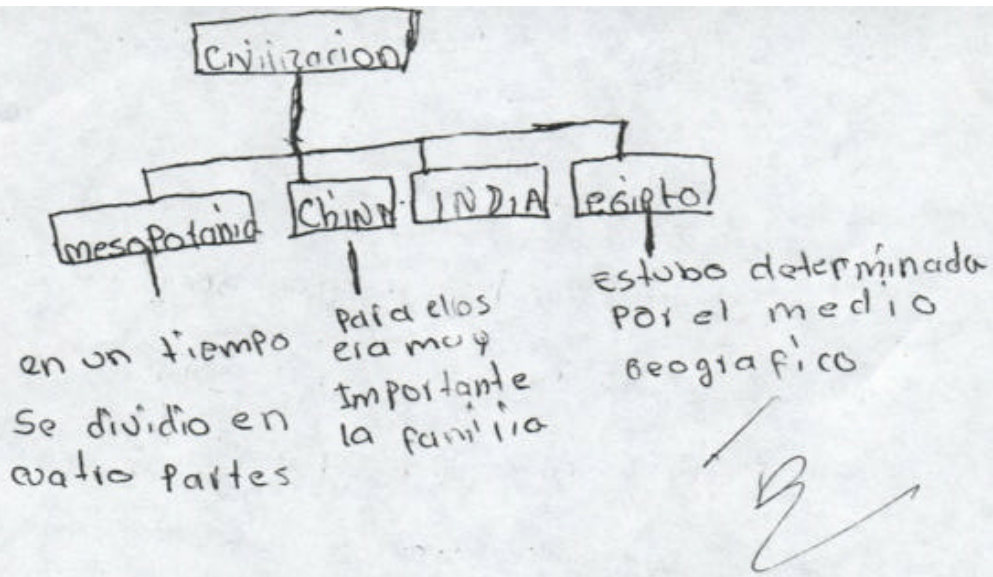 Civilizacion
mesopotamia
China
INDIA
egipto
en un tiempo
Se dividio en
cuatro Partes
Para ellos
era muy
Importante
la familia
Estubo determinada
Por el medio
Geografico